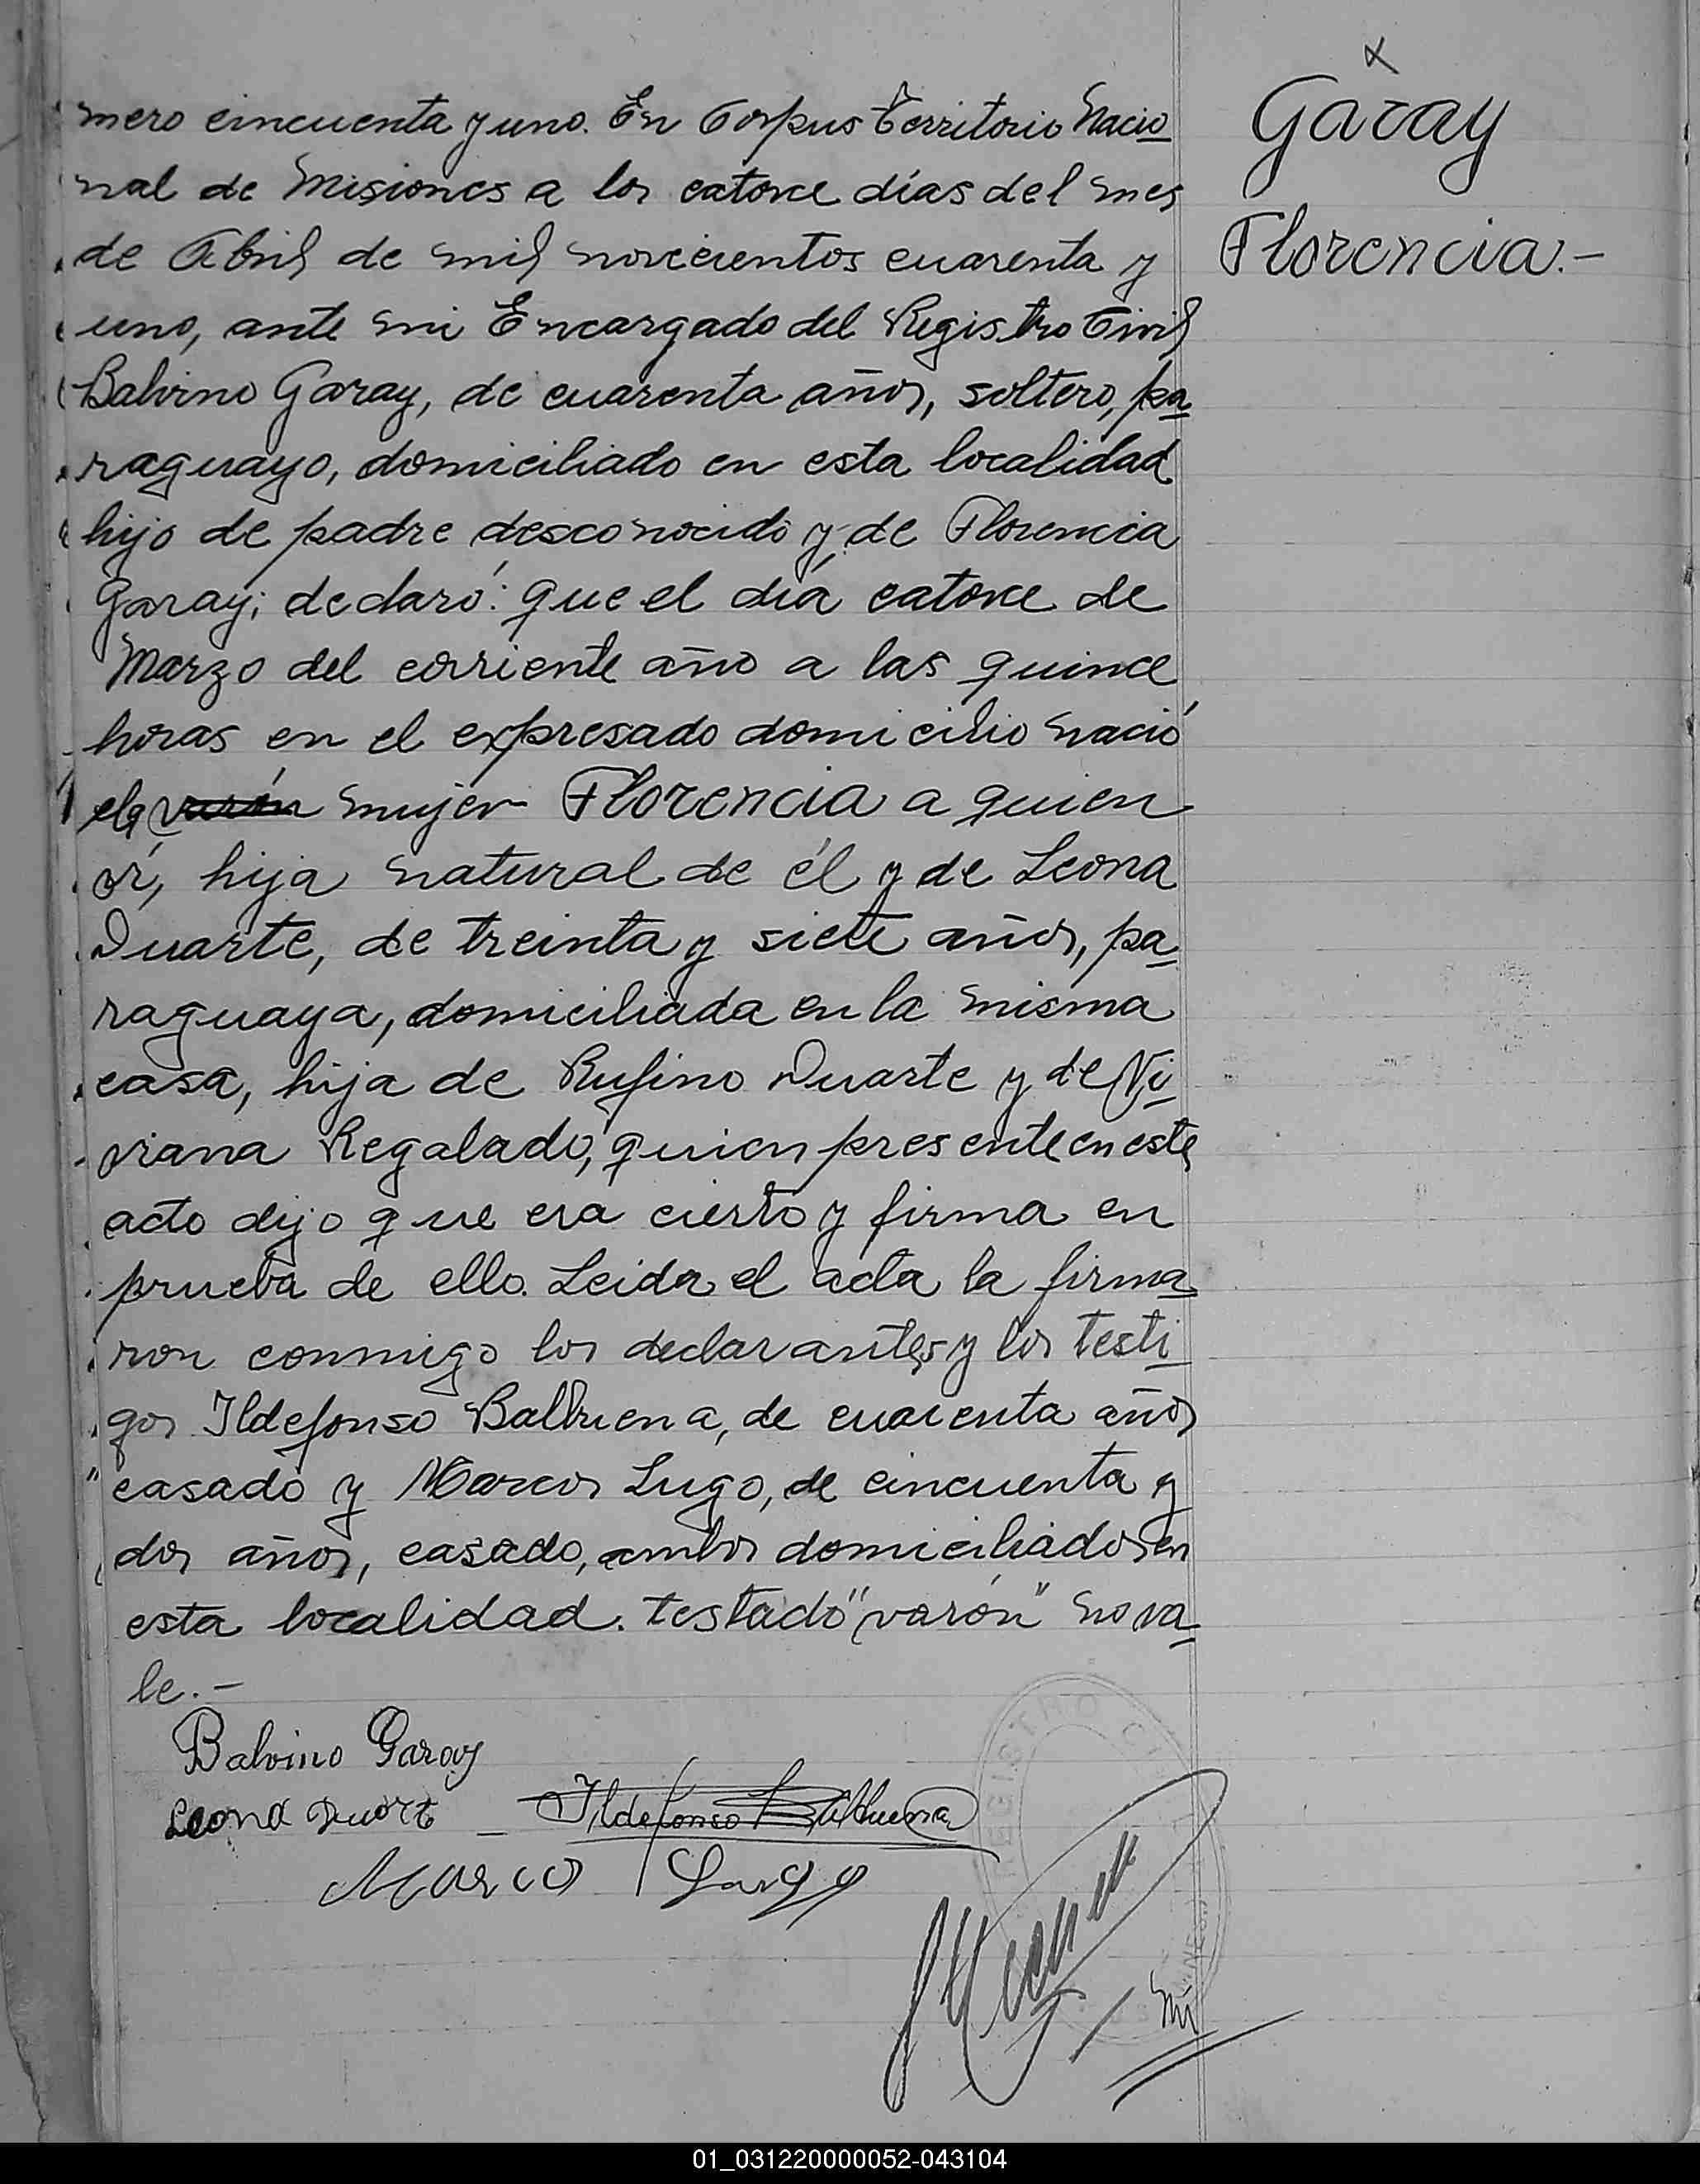 mero cincuenta y uno. En Corpus Territorio Nacio
nal de Misiones a los catorce días del mes
de Abril de mil novecientos cuarenta y
uno, ante mi Encargado del Registro Civil
Balvino Garay, de cuarenta años, soltero, pa
raguayo, domiciliado en esta localidad
hijo de padre desconocido y de Florencia
Garay; declaró: que el día catorce de
Marzo del corriente año a las quince
horas en el expresado domicilio nació
varón mujer Florencia a quien
hija natural de él y de Leona
Duarte, de treinta y siete años, pa
raguaya, domiciliada en la misma
casa, hija de Rufino Duarte y de Vi
viana Regalado, quien presente en este
acto dijo que era cierto y firma en
prueba de ello. Leida el acta la firma
ron conmigo los declarantes y los testi
gos Ildefonso Balbuena, de cuarenta años
casado y Marcos Lugo, de cincuenta y
dos años, casado, ambos domiciliados en
esta localidad. testado "varón" no va
le.-
x
Garay
Florencia.-
Balvino Garay
Leona Duarte
Ildefonso Balbuena
Marcos Lugo
REGISTRO
01_031220000052-043104